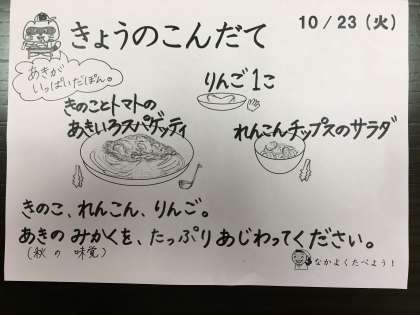 きょうのこんだて
10/23（火）
あきが
いっぱいだぽん。
りんご1こ
きのことトマトの
あきいろスパゲッティ
れんこんチップスのサラダ
きのこ、れんこん、りんご。
あきの みかくを、たっぷりあじわってください。
（秋の 味覚）
なかよくたべよう！